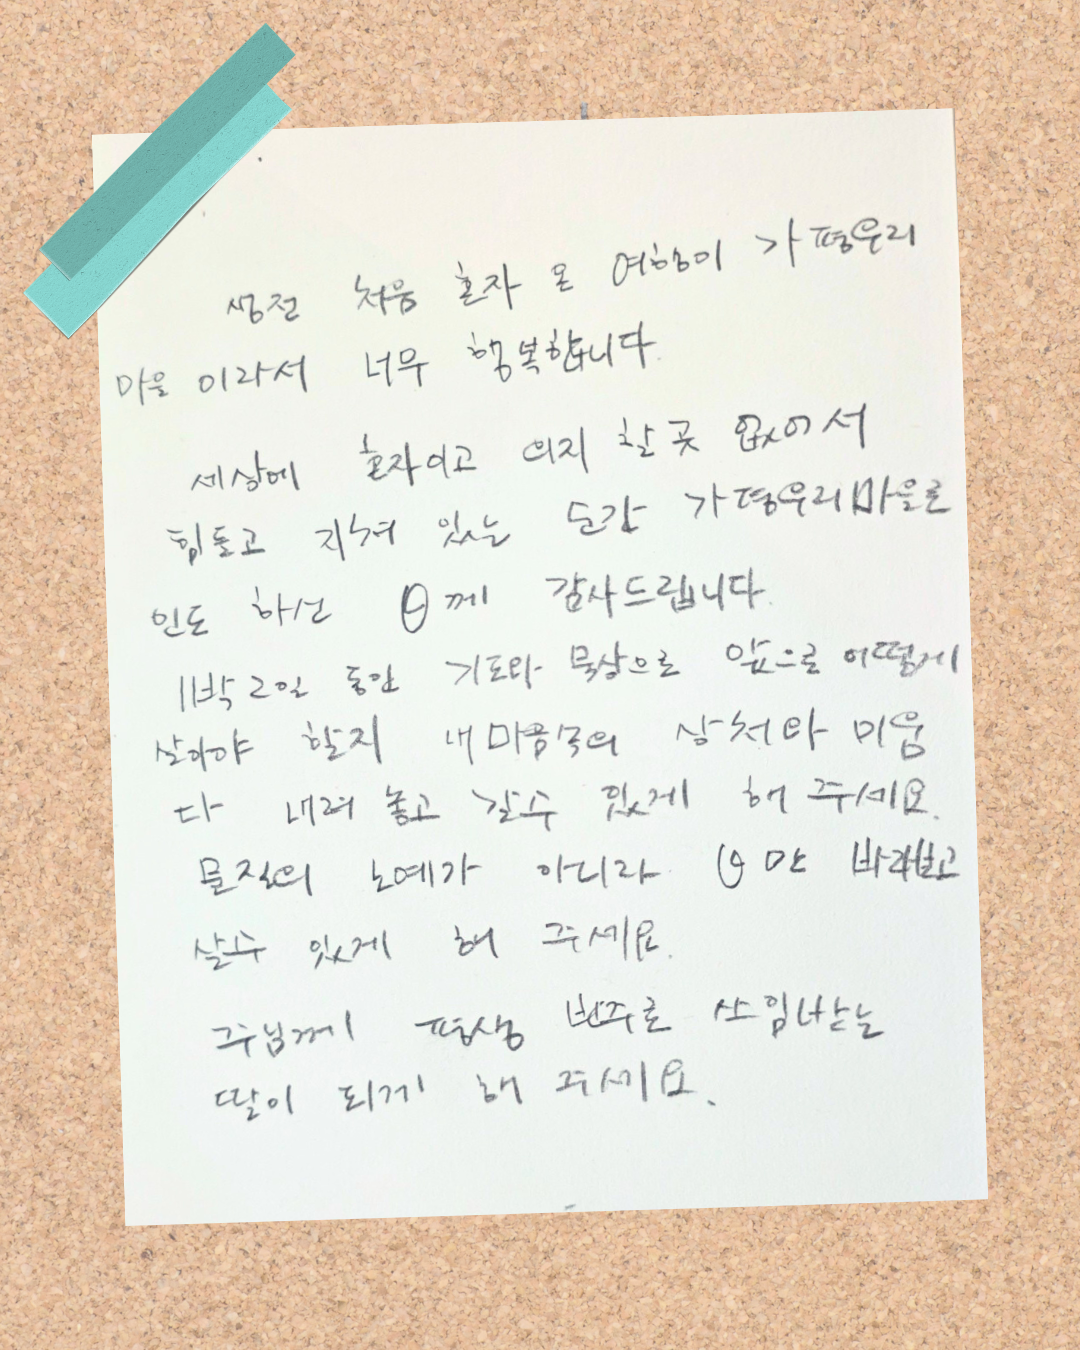 생전 처음 혼자 온 여행이 가평우리
마을 이라서 너무 행복합니다.
세상에 혼자이고 의지 할 곳 없어서
힘들고 지쳐 있는 순간 가평우리마을로
인도 하신 께 감사드립니다.
11박 2일 동안 기도와 묵상으로 앞으로 어떻게
살아야 할지 내 마음속의 상처와 미움
다 내려 놓고 갈수 있게 해 주세요.
물질의 노예가 아니라 만 바라보고
살수 있게 해 주세요.
주님께 평생 반주로 쓰임받는
딸이 되게 해 주세요.